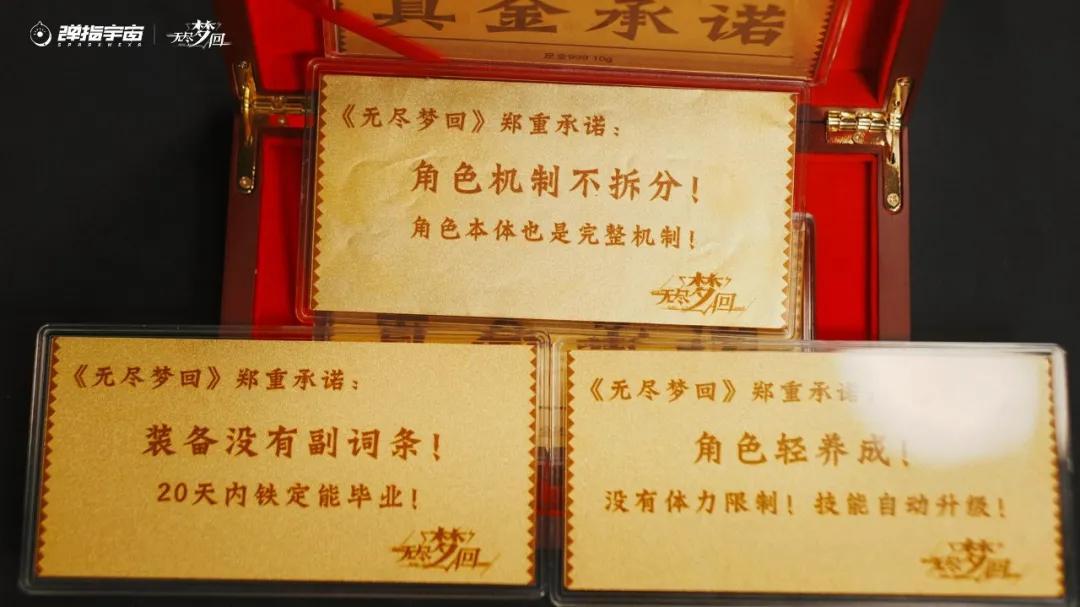 弹指宇宙
无尽梦回
真金承诺
足金999 10g
《无尽梦回》郑重承诺：
角色机制不拆分！
角色本体也是完整机制！
无尽梦回
《无尽梦回》郑重承诺：
装备没有副词条！
20天内铁定能毕业！
无尽梦回
《无尽梦回》郑重承诺：
角色轻养成！
没有体力限制！技能自动升级！
无尽梦回